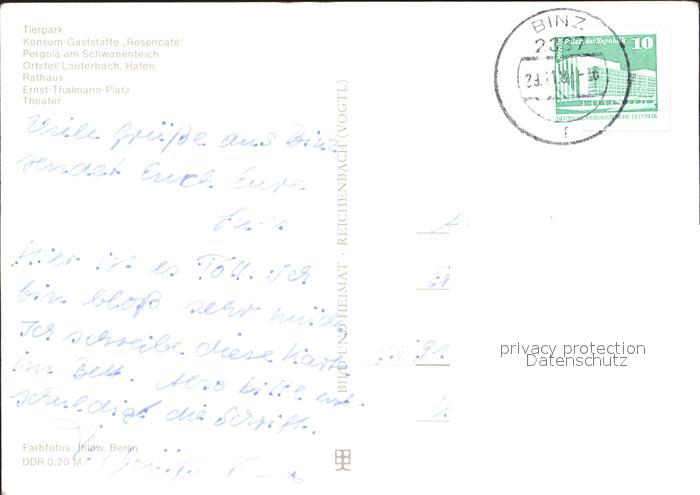 Tierpark
Konsum-Gaststätte „Rosencafé"
Pergola am Schwanenteich
Ortsteil Lauterbach, Hafen
Rathaus
Ernst-Thälmann-Platz
Theater
BINZ
2337
f
Palast der Republik 10
DEUTSCHE DEMOKRATISCHE REPUBLIK
Viele Grüße aus Binz
sendet Euch Eure
Hier ist es Toll. Ich
bin bloß sehr müde
Ich schreibe diese Karte
im Bett. Also bitte ent-
schuldigt die Schrift.
BILD UND HEIMAT · REICHENBACH (VOGTL)
privacy protection
Datenschutz
Farbfotos: Ihlow, Berlin
DDR 0,20 M